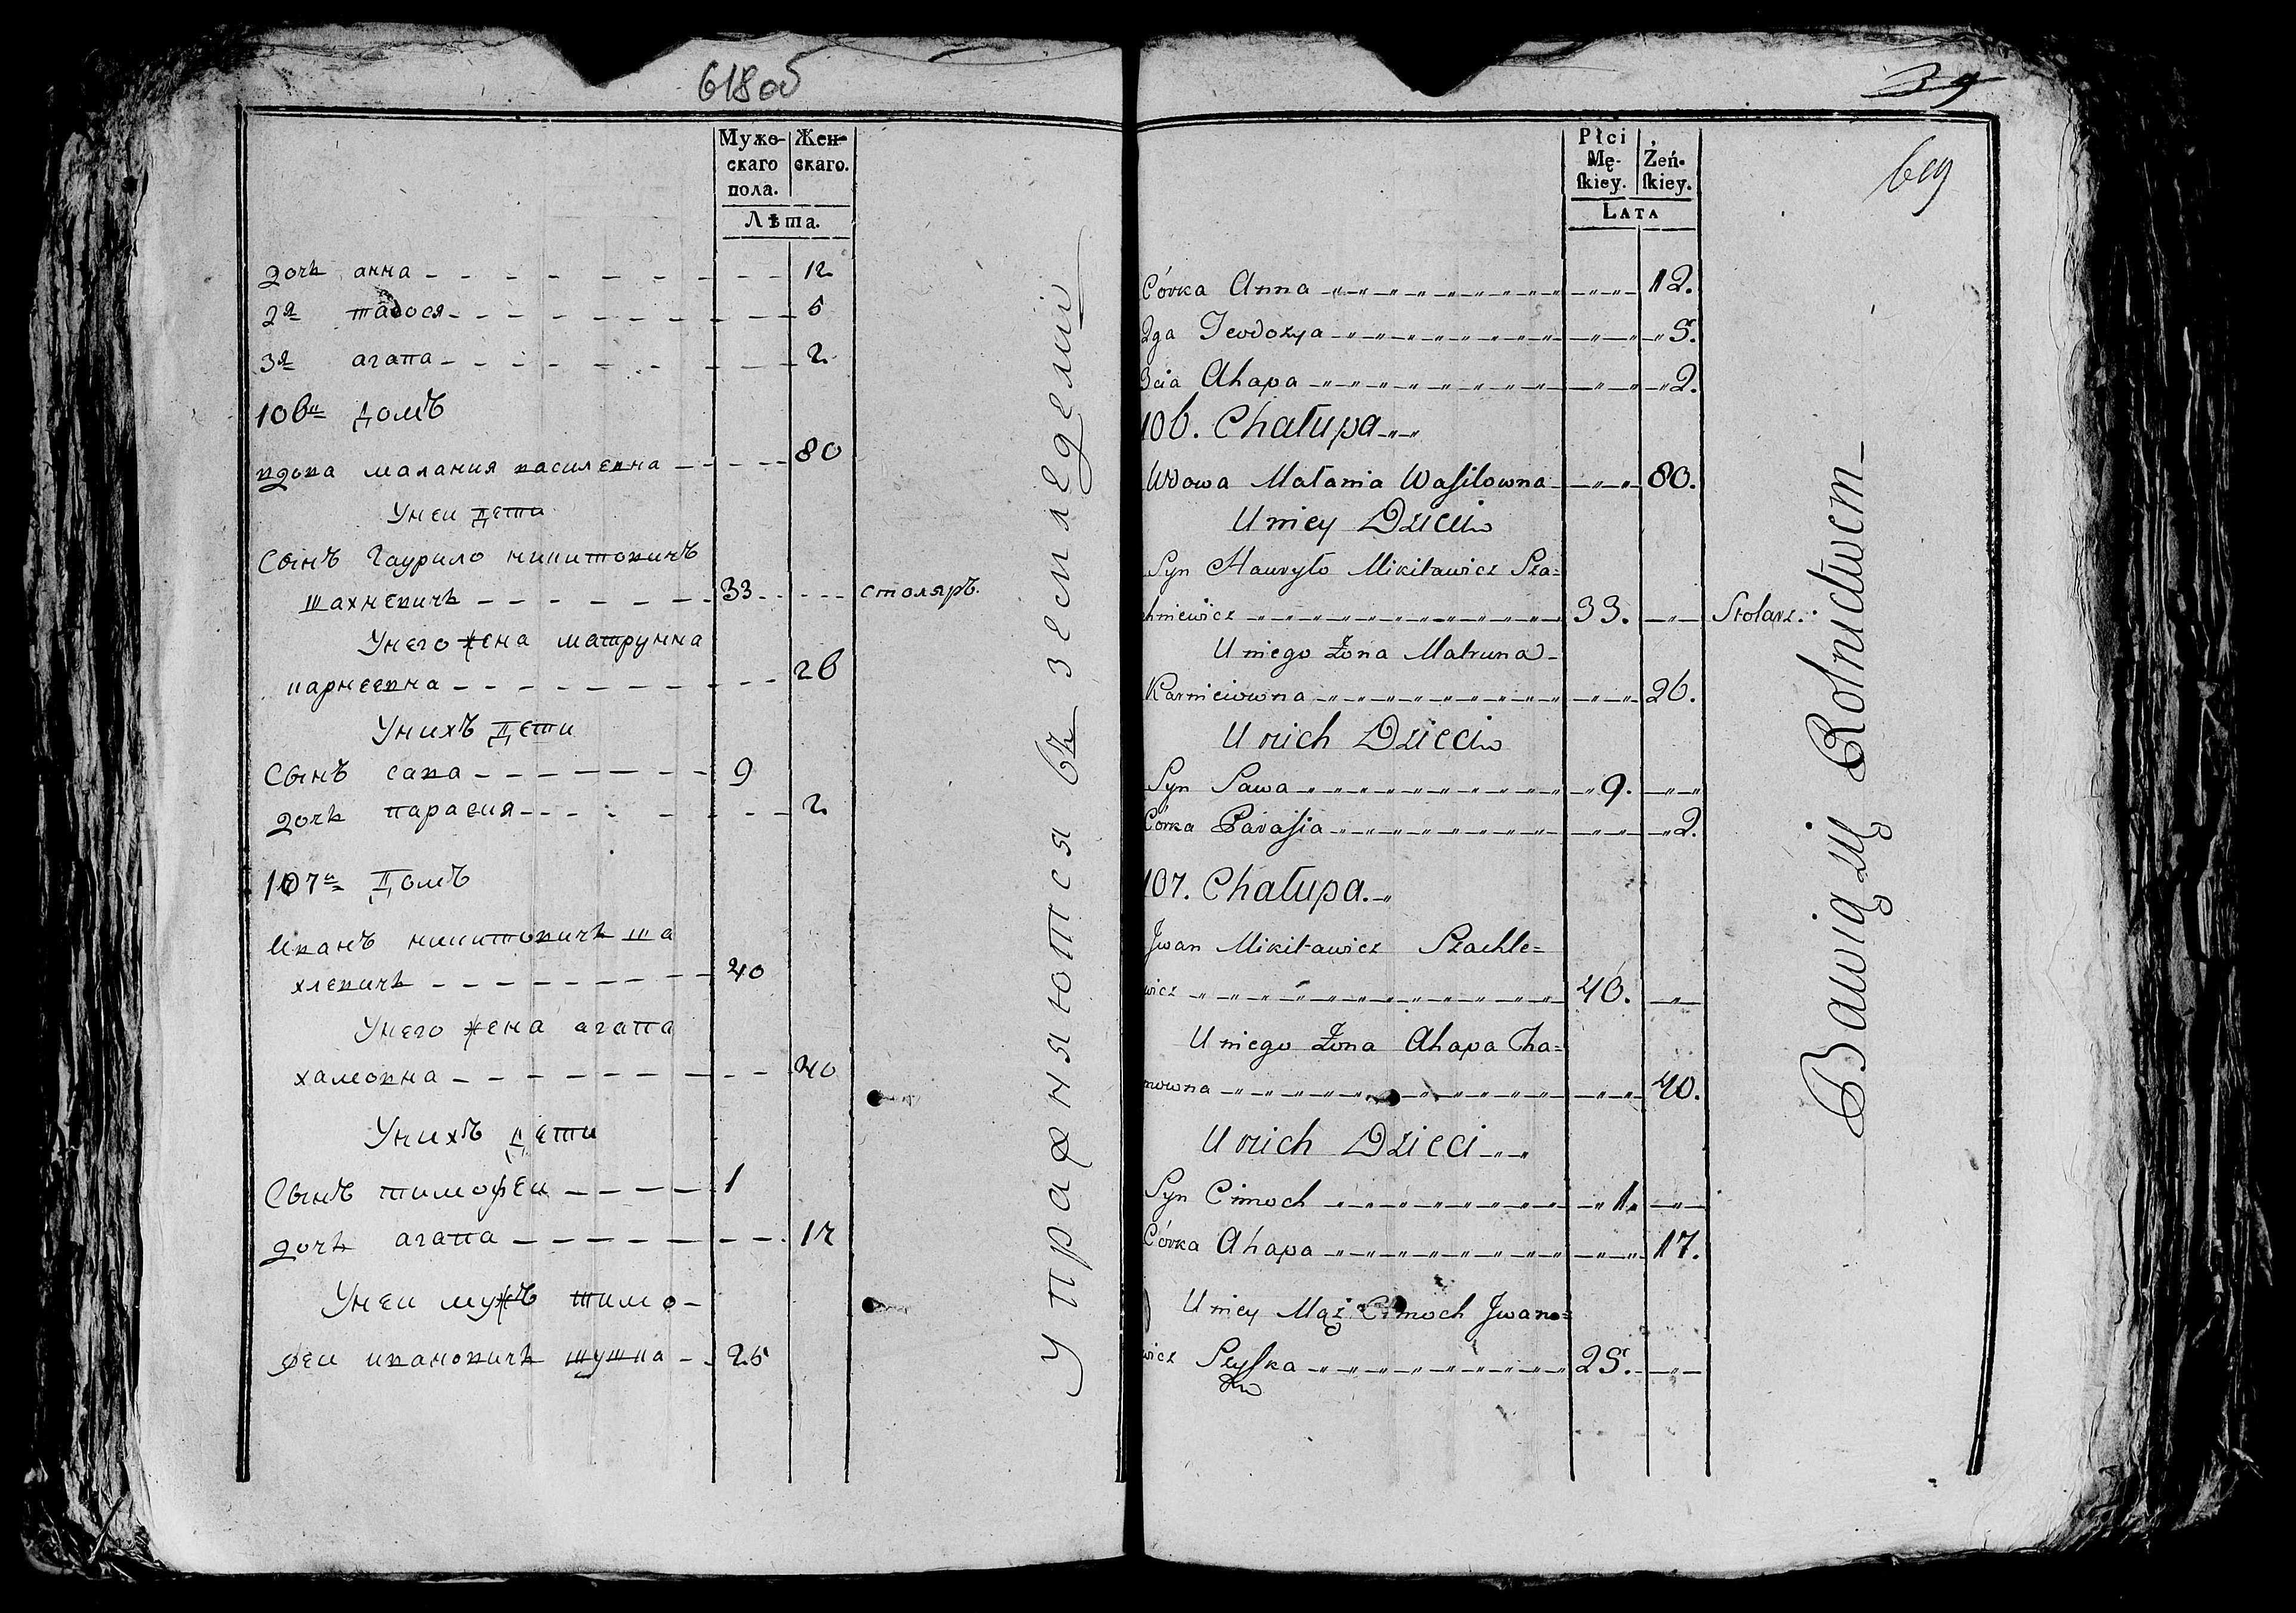 618об
Муже-
скаго
пола.
Жен-
скаго.
Лѣта.
дочь анна - - - - - - - - - 12
2я тадося - - - - - - - - - 5
3я агапа - - - - - - - - - 2
106й домъ
вдова малания василевна - - - - 80
Унеи дети
Сынъ Гаурило никитовичъ
шахневичь - - - - - - - 33 - - - - столяръ.
Унего жена матрунна
карнеевна - - - - - - - - - 26
Унихъ дети
Сынъ сава - - - - - - - 9
дочь парасия - - - - - - - 2
107й Домъ
Иванъ никитовичь ша
хлевичь - - - - - - - - - 40
Унего жена агапа
хамовна - - - - - - - - - 40
Унихъ дети
Сынъ тимофеи - - - - 1
дочь агапа - - - - - - - - - 17
Унеи мужъ тимо-
феи ивановичь шушка - - 25
Упрафняютса
земледелию
39
619
Płci
Mę-
ſkiey.
Żeń-
ſkiey.
LATA
Córka Anna 12.
2ga Teodozya 5.
3cia Ahapa 2.
106. Chałupa
Wdowa Małania Waſilowna 80.
U niey Dzieci
Syn Hauryło Mikitawicz Sza=
chniewicz 33. Stolarz.
U niego Żona Matruna
Karnieiowna 26.
U nich Dzieci
Syn Sawa 9.
Córka Paraſia 2.
107. Chałupa.
Jwan Mikitawicz Szachle=
wicz 40.
U niego Żona Ahapa Cha=
mowna 40.
U nich Dzieci
Syn Cimoch 1.
Córka Ahapa 17.
U niey Mąż Cimoch Jwano=
wicz Szyſka 25.
Bawią się Rolnictwem